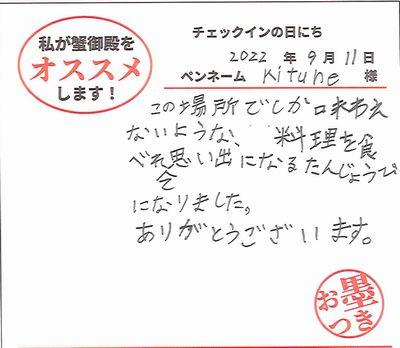 私が蟹御殿を
オススメ
します！
チェックインの日にち
2022 年 9月 11日
ペンネーム Kitune 様
この場所でしか味わえ
ないような、料理を食
べれ思い出になるたんじょうび
会
になりました。
ありがとうございます。
お墨
つき